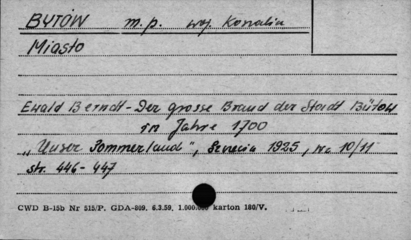 BYTÓW m.p. woj. Konalin
Miasto
Ewald Berndt - Der grosse Brand der Stadt Bütow
in Jahre 1700
„Unser Pommerland", 1925, nr 10/11
str. 446-447
CWD B-15b Nr 515/P. GDA-809. 6.3.59. 1.000.000 karton 180/V.